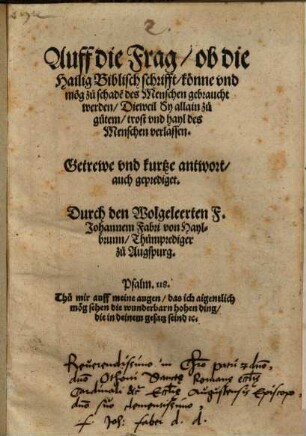 2
Auff die Frag / ob die
Hailig Biblisch schrifft / könne vnd
mög zů schadē des Menschen gebraucht
werden / Dieweil Sy allain zů
gůtem / trost vnd hayl des
Menschen verlassen.
Getrewe vnd kurtze antwort /
auch geprediget.
Durch den Wolgeleerten F.
Johannem Fabri von Hayl-
brunn / Thůmprediger
zů Augspurg.
Psalm. 118.
Thů mir auff meine augen / das ich aigentlich
mög sehen die wunderbarn hohen ding /
die in deinem gesatz seind ⁊c.
Reuerendissimo in Chro patri & dno,
dno Othoni Sanctę Romanę Eccłię
Cardinali &c Eccłię Augustensis Episcopo
dno suo clementissimo
F Joh: fabri d. d.